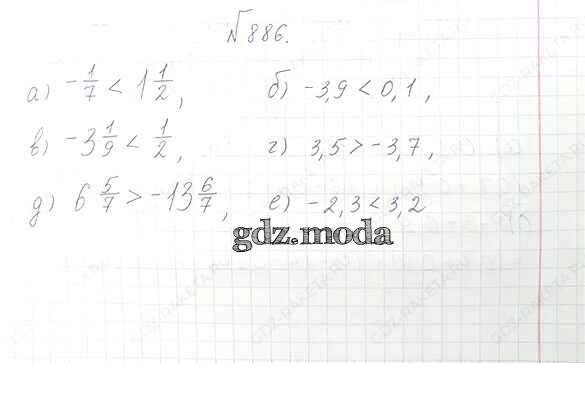 №886.
а) -1/7 < 1 1/2, б) -3,9 < 0,1,
в) -3 1/9 < 1/2, г) 3,5 > -3,7,
д) 6 5/7 > -13 6/7, е) -2,3 < 3,2
gdz.moda